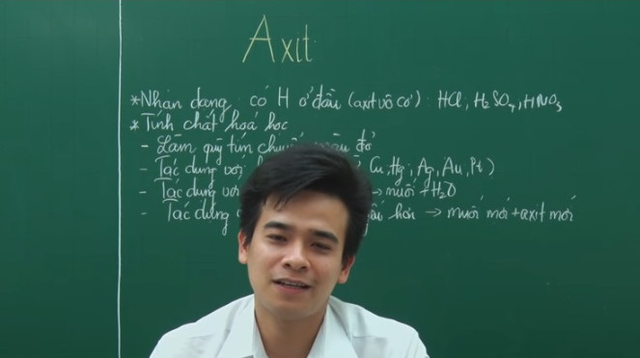 Axit
*Nhận dạng: có H ở đầu (axit vô cơ): HCl, H₂SO₄, HNO₃
*Tính chất hoá học
- Làm quỳ tím đỏ
- Tác dụng với Cu, Hg, Ag, Au, Pt)
- Tác dụng với → muối + H₂O
- Tác dụng hơn → muối mới + axit mới